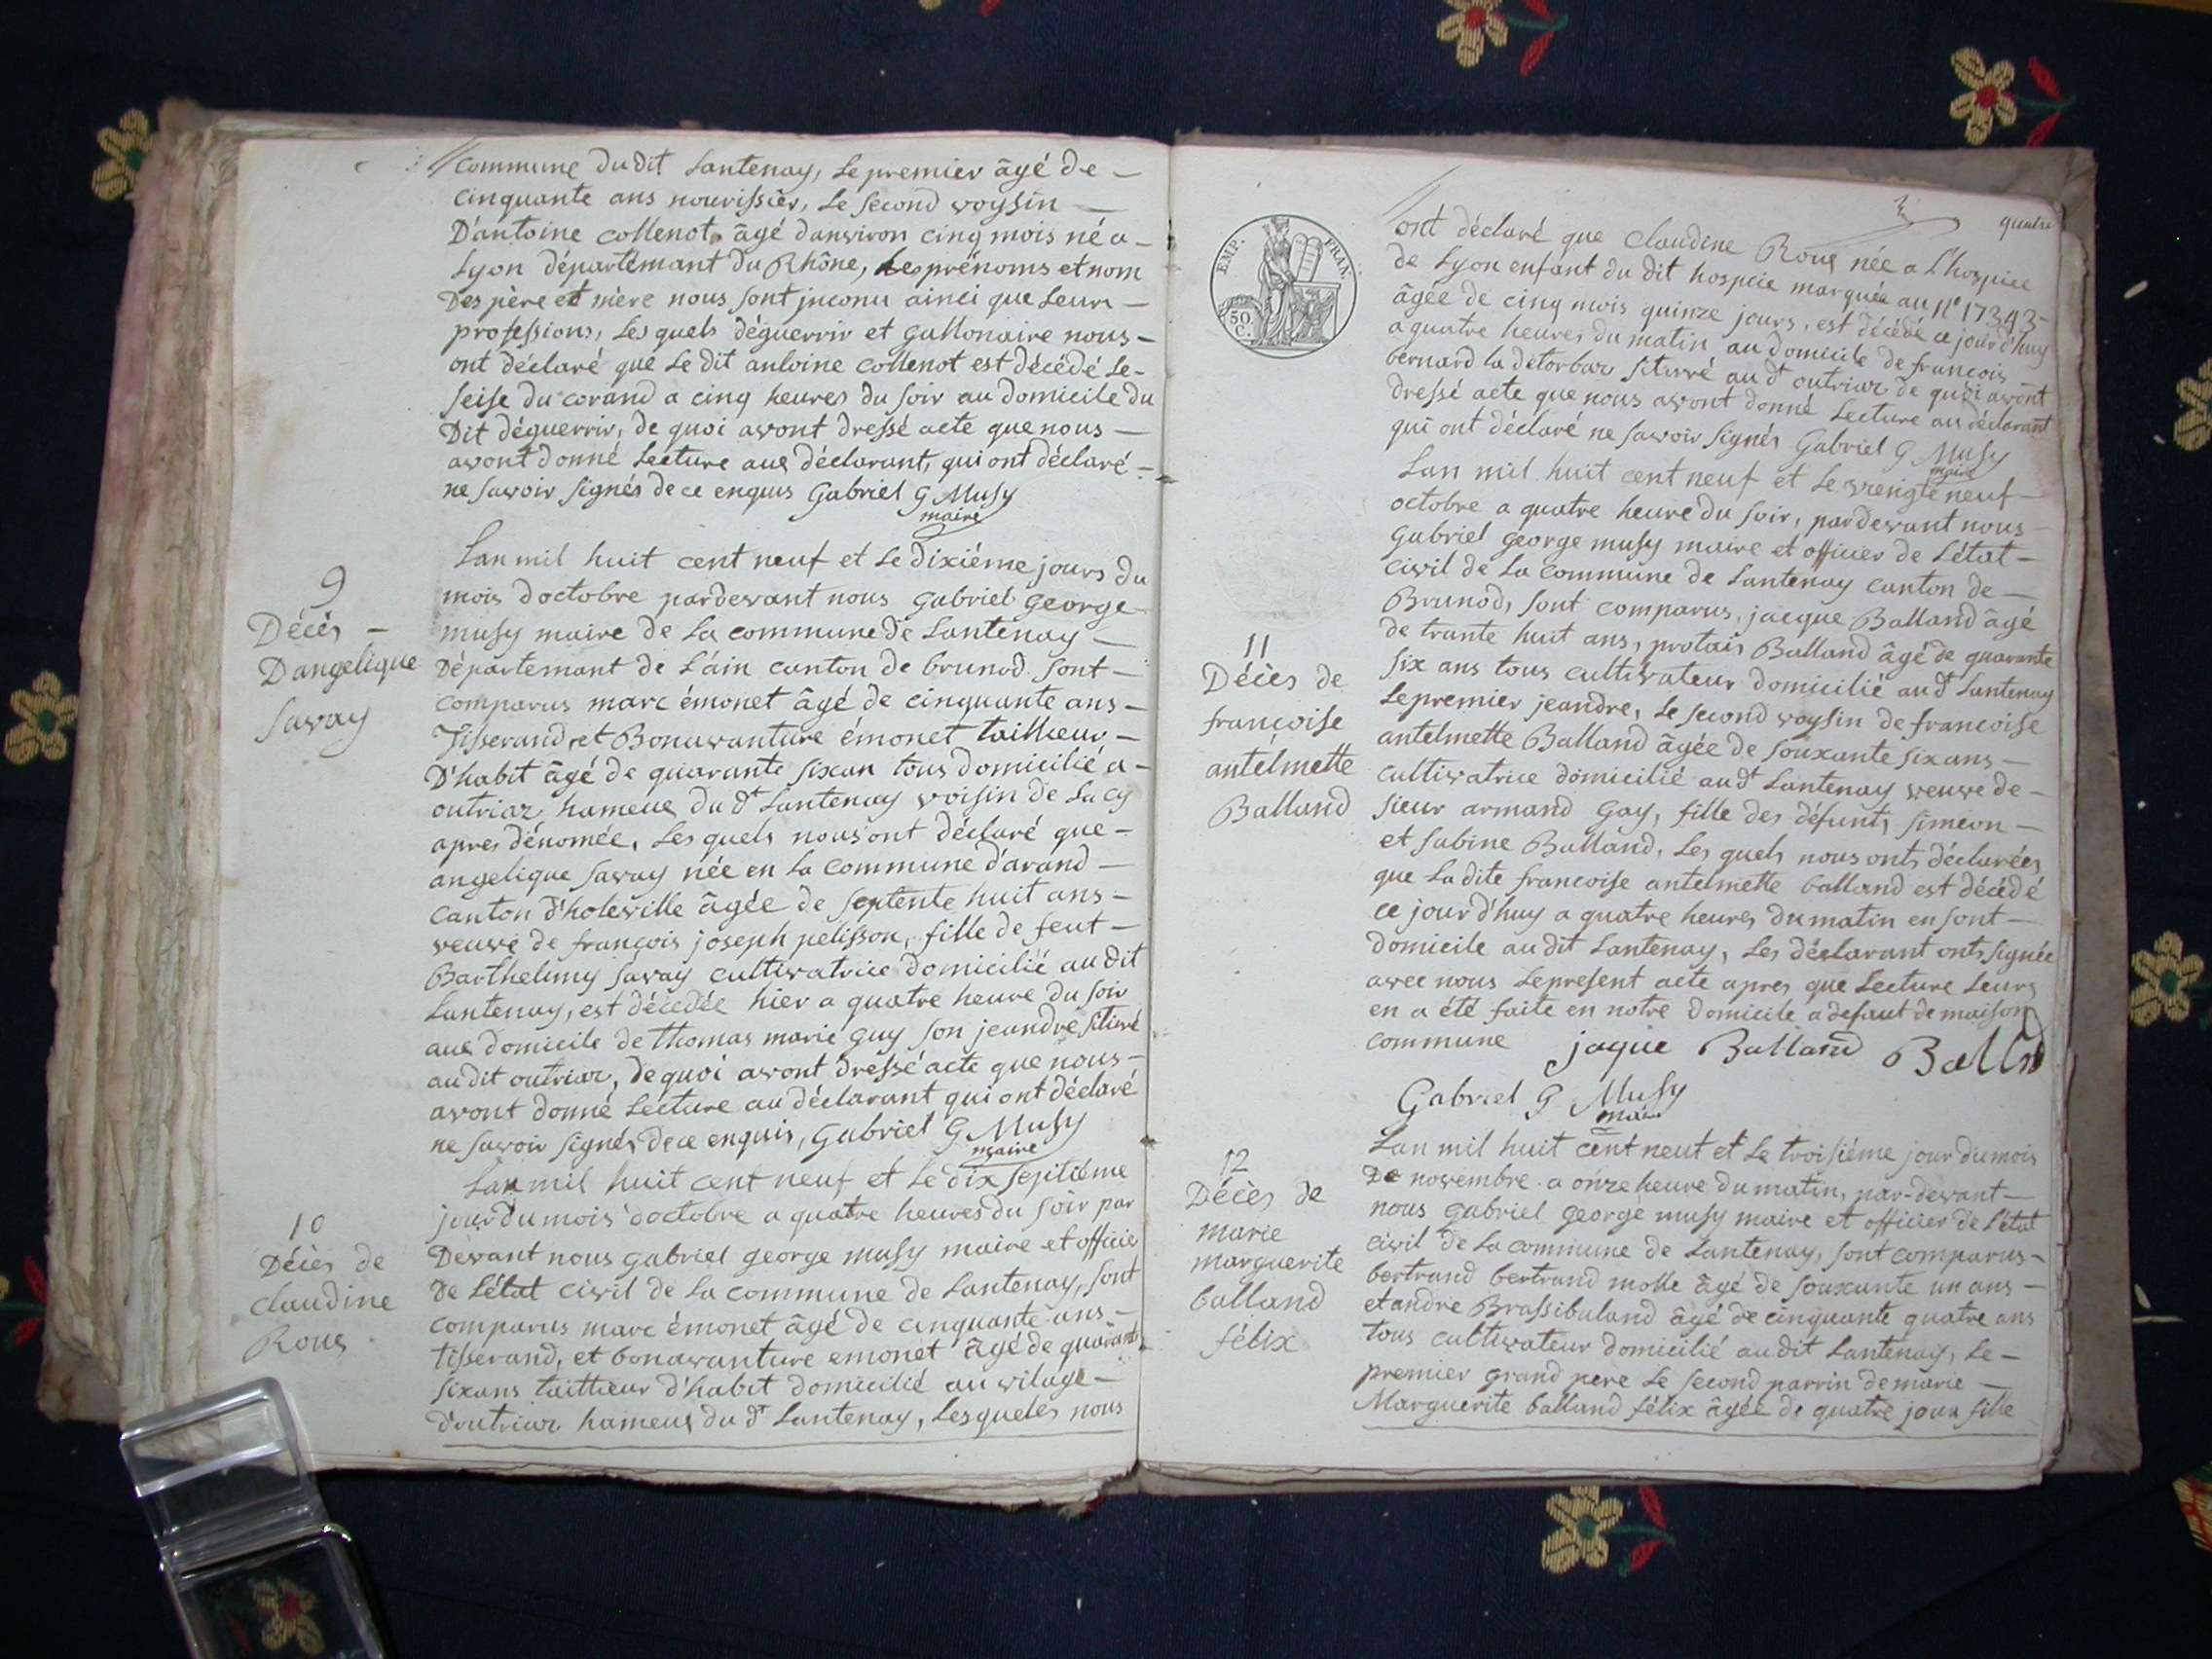 commune du dit Lantenay, Le premier âgé de —
cinquante ans nourissièr, Le second voysin —
D'antoine collenot, âgé danviron cinq mois né a —
Lyon départémant du Rhône, Les prénoms et nom
Des père et mère nous sont jnconu ainci que Leurs —
professions, Les quels déguerrir et gallonaire nous —
ont déclaré que Le dit antoine collenot est décédé Le —
seise du corand a cinq heures du soir au domicile du
Dit déguerrir, de quoi avont dressé acte que nous —
avont donné Lecture aux déclarant, qui ont déclaré —
ne savoir signés de ce enquis Gabriel G Musy
maire
9
Décès —
D'angelique
Savay
Lan mil huit cent neuf et Le dixiéme jours du
mois d'octobre pardevant nous gabriel george
musy maire de La commune de Lantenay —
Départemant de L'ain canton de brunod sont —
comparus marc émonet âgé de cinquante ans —
Tisserand, et Bonavanture émonet tailleur —
D'habit âgé de quarante sixan tous domicilié a —
outriaz hameux du dt Lantenay voisin de La cy
apres dénomée, Les quels nous ont déclaré que —
angelique savay née en La commune d'arand —
canton d'hoteville âgée de septente huit ans —
veuve de françois joseph pelisson, fille de feut —
Barthelimy savay cultivatrice domicilié au dit
Lantenay, est décedée hier a quatre heure du soir
aux domicile de thomas marie guy son jeandre sitivé
au dit outriaz, de quoi avont dressé acte que nous —
avont donné Lecture au déclarant qui ont déclaré
ne savoir signés de ce enquis, Gabriel G Musy
maire
10
Décès de
claudine
Roux
Lan mil huit cent neuf et Le dix septiéme
jour du mois d'octobre a quatre heures du soir par
Devant nous gabriel george musy maire et officié
de L'état civil de La commune de Lantenay, sont
comparus marc émonet âgé de cinquante ans —
tisserand, et bonavanture emonet âgé de quarante
sixans tailleur d'habit domicilié au vilage —
d'outriaz hameux du dt Lantenay, Lesqueles nous
quatre
EMP. FRAN.
50
C.
ont déclaré que claudine Roux née a L'hospice
de Lyon enfant du dit hospice marquée au N° 17393 —
âgée de cinq mois quinze jours, est décédé ce jourd'huy
a quatre heures du matin au domicile de françois
bernard la détorbar sitivré au dt outriaz de quoi avont
dressé acte que nous avont donné Lecture au déclarant
qui ont déclaré ne savoir signés Gabriel G Musy
maire
11
Décès de
françoise
antelmette
Balland
Lan mil huit cent neuf et Le vengte neuf —
octobre a quatre heure du soir, pardevant nous —
Gabriel george musy maire et officier de L'état —
civil de La commune de Lantenay canton de —
Brunod, sont comparus, jacque Balland âgé
de trante huit ans, protais Balland âgé de quarante
six ans tous cultivateur domicilié au dt Lantenay
Le premier jeandre, Le second voysin de françoise
antelmette Balland âgée de souxante six ans —
cultivatrice domicilié au dt Lantenay veuve de —
sieur armand gay, fille des défunts simeon —
et sabine Balland, Les quels nous onts déclarées
que La dite francoise antelmette balland est décédé
ce jour d'huy a quatre heures du matin en sont —
domicile au dit Lantenay, Les déclarant onts signée
avec nous Le present acte apres que Lecture Leurs
en a été faite en notre domicile a defaut de maison
commune jaque Balland Balland
Gabriel G Musy
maire
12
Décès de
marie
marguerite
balland
félix
Lan mil huit cent neuf et Le troisiéme jour du mois
De novembre a onze heure du matin, par-devant —
nous gabriel george musy maire et officier de L'état
civil de La commune de Lantenay, sont comparus —
bertrand bertrand molle âgé de souxante un ans —
et andre Brassibuland âgé de cinquante quatre ans
tous cultivateur domicilié au dit Lantenay, Le —
premier grand pere Le second parrin de marie —
Marguerite balland félix âgée de quatre jour fille